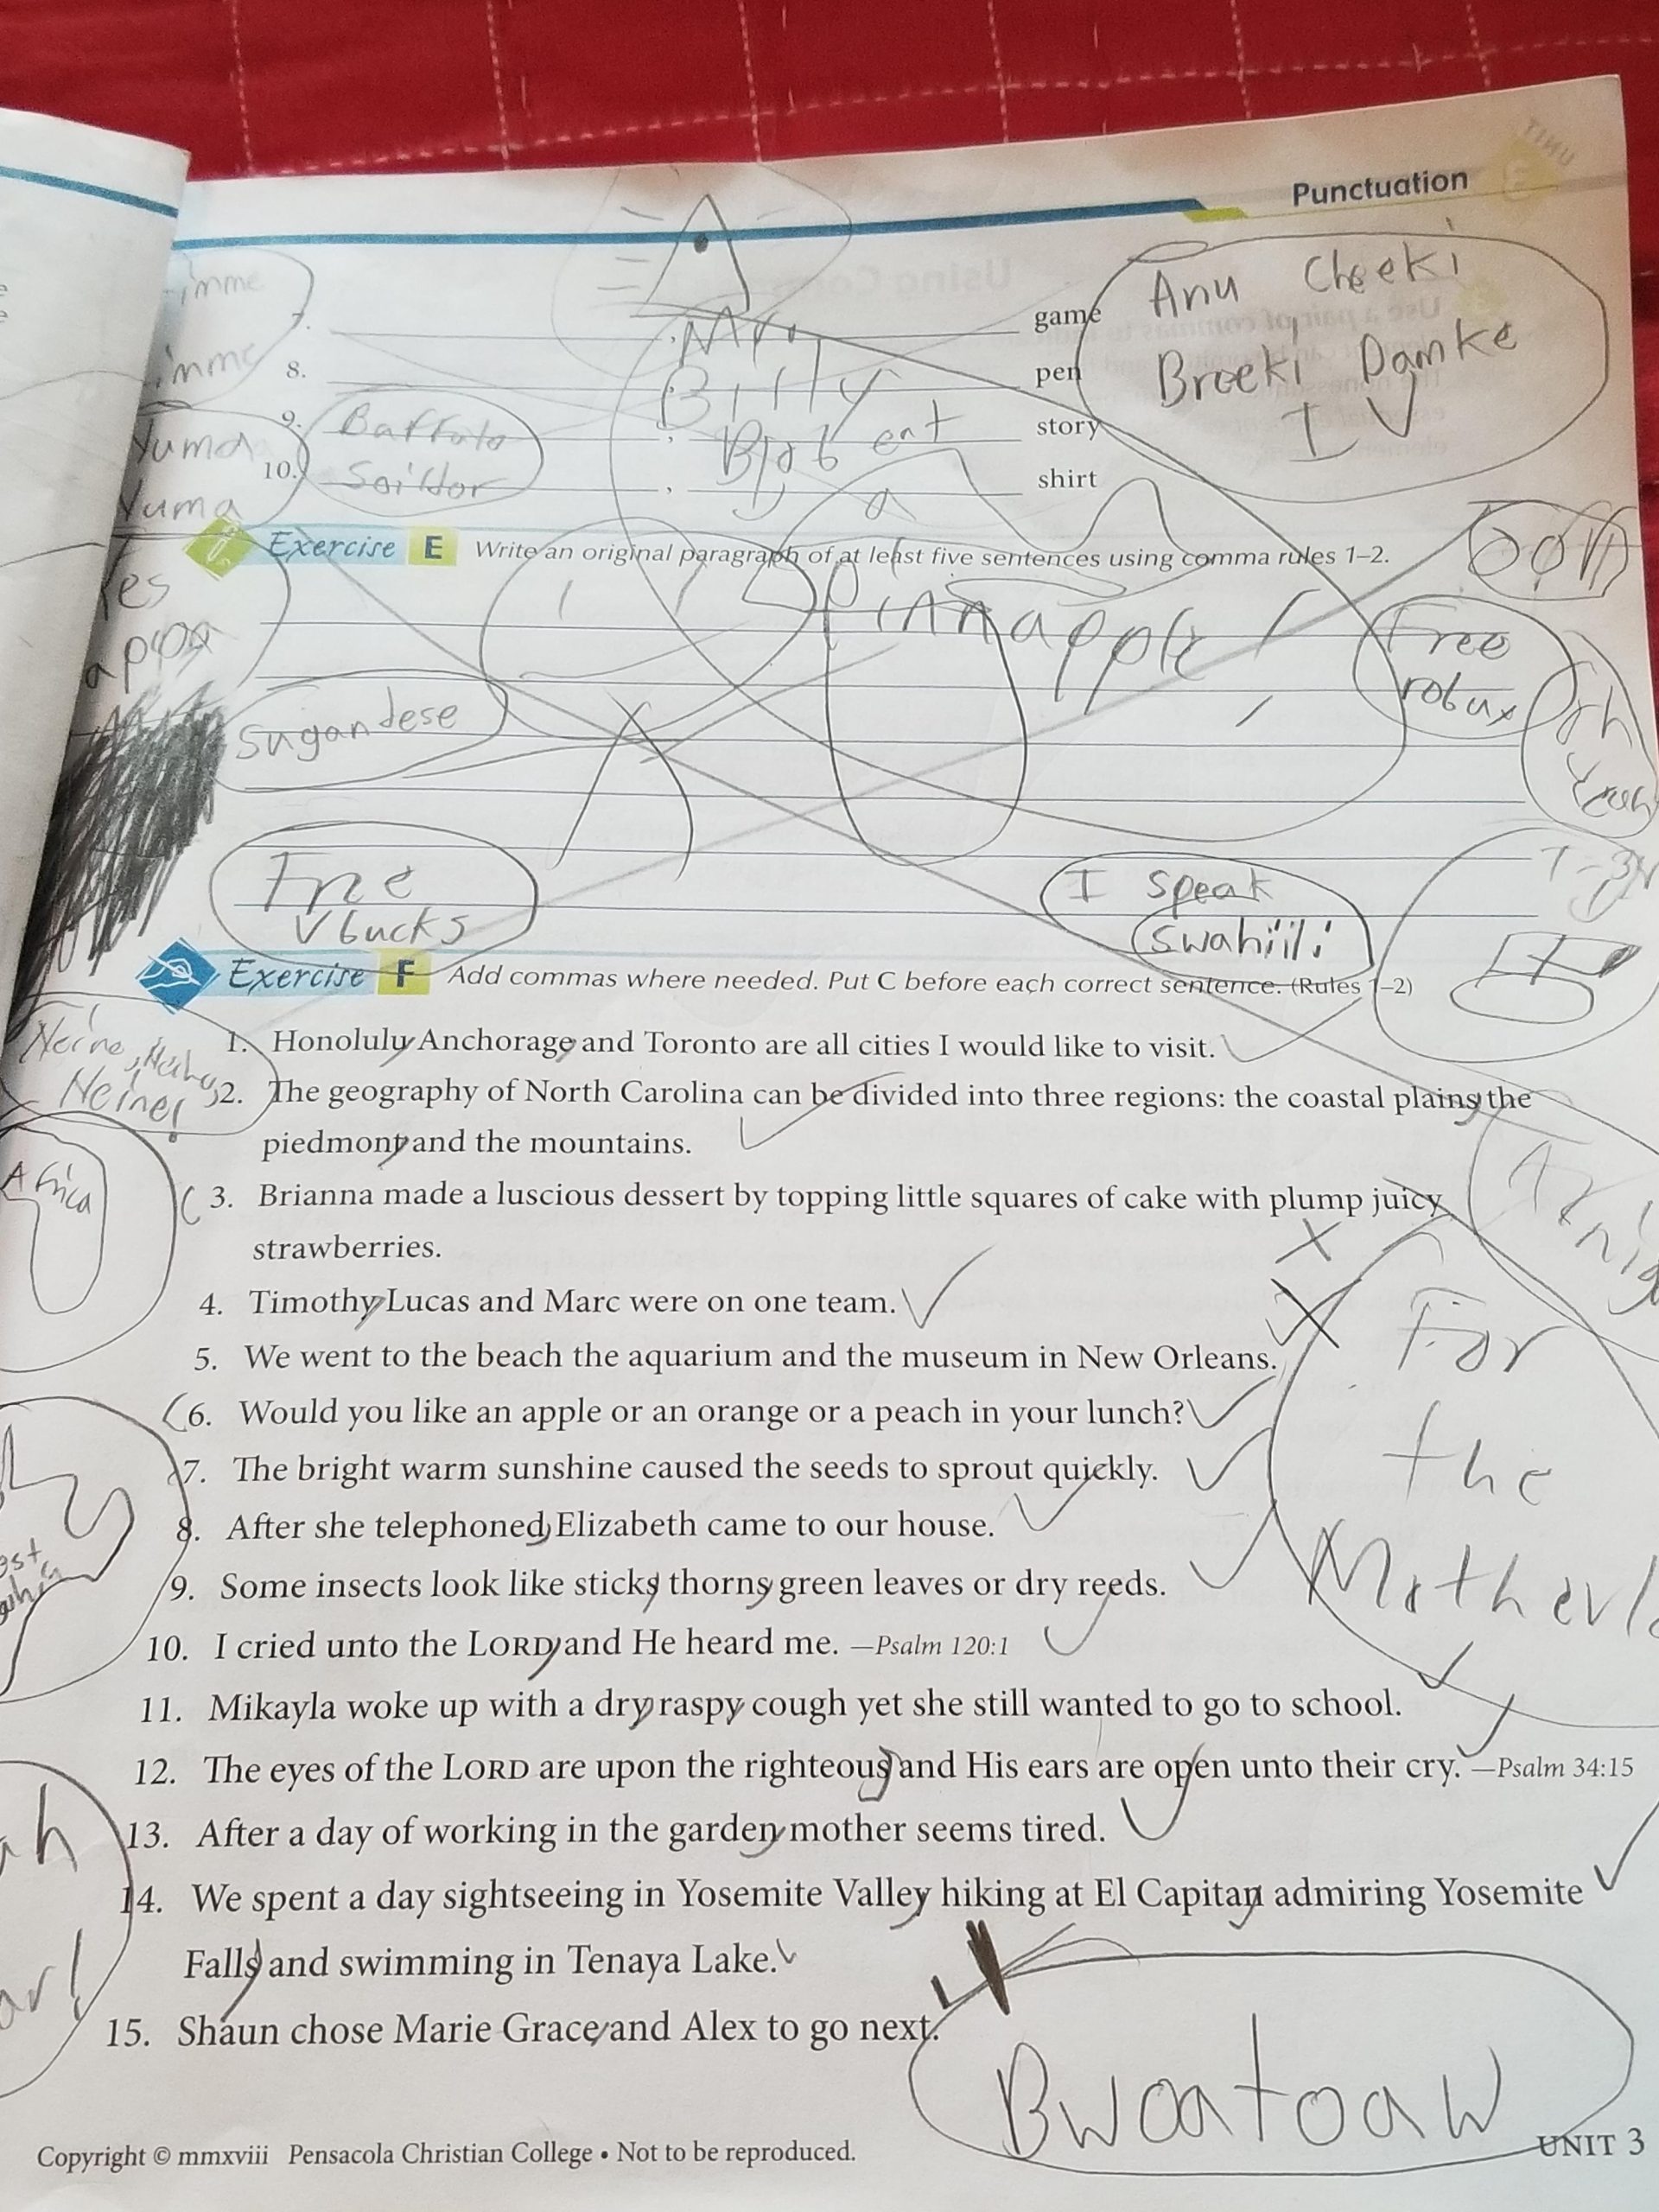 Punctuation
Anu Cheeki
Breeki Damke
IV
7. , game
Mr.
8. , pen
Billy
9. , story
Buffalo
10. , shirt
Yuma
Yuma
Exercise E Write an original paragraph of at least five sentences using comma rules 1–2.
Yes
Pinnapple
Free
robux
sugandese
Free
Vbucks
I speak
swahiili
Exercise F Add commas where needed. Put C before each correct sentence. (Rules 1–2)
1. Honolulu, Anchorage, and Toronto are all cities I would like to visit.
Neine!
2. The geography of North Carolina can be divided into three regions: the coastal plains, the
piedmont, and the mountains.
Africa
C 3. Brianna made a luscious dessert by topping little squares of cake with plump juicy
strawberries.
4. Timothy, Lucas and Marc were on one team.
5. We went to the beach the aquarium and the museum in New Orleans.
C 6. Would you like an apple or an orange or a peach in your lunch?
7. The bright warm sunshine caused the seeds to sprout quickly.
8. After she telephoned, Elizabeth came to our house.
9. Some insects look like sticks, thorns, green leaves or dry reeds.
10. I cried unto the LORD, and He heard me. —Psalm 120:1
For
the
11. Mikayla woke up with a dry, raspy, cough yet she still wanted to go to school.
12. The eyes of the LORD are upon the righteous, and His ears are open unto their cry. —Psalm 34:15
13. After a day of working in the garden, mother seems tired.
14. We spent a day sightseeing in Yosemite Valley, hiking at El Capitan, admiring Yosemite
Falls, and swimming in Tenaya Lake.
15. Shaun chose Marie Grace, and Alex to go next.
Bwoatoaw
Copyright © mmxviii Pensacola Christian College • Not to be reproduced.
UNIT 3